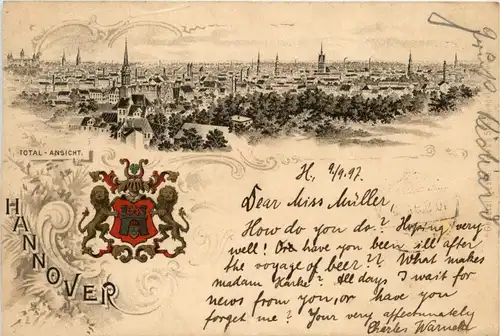 TOTAL-ANSICHT.
HANNOVER
H, 9/9.97.
Dear Miss Müller,
How do you do? Hoping very
well! Or have you been ill after
the voyage of beer?? What makes
madam Hanke? All days I wait for
news from you, or have you
forget me? Your very affectunately
Charles Warneke